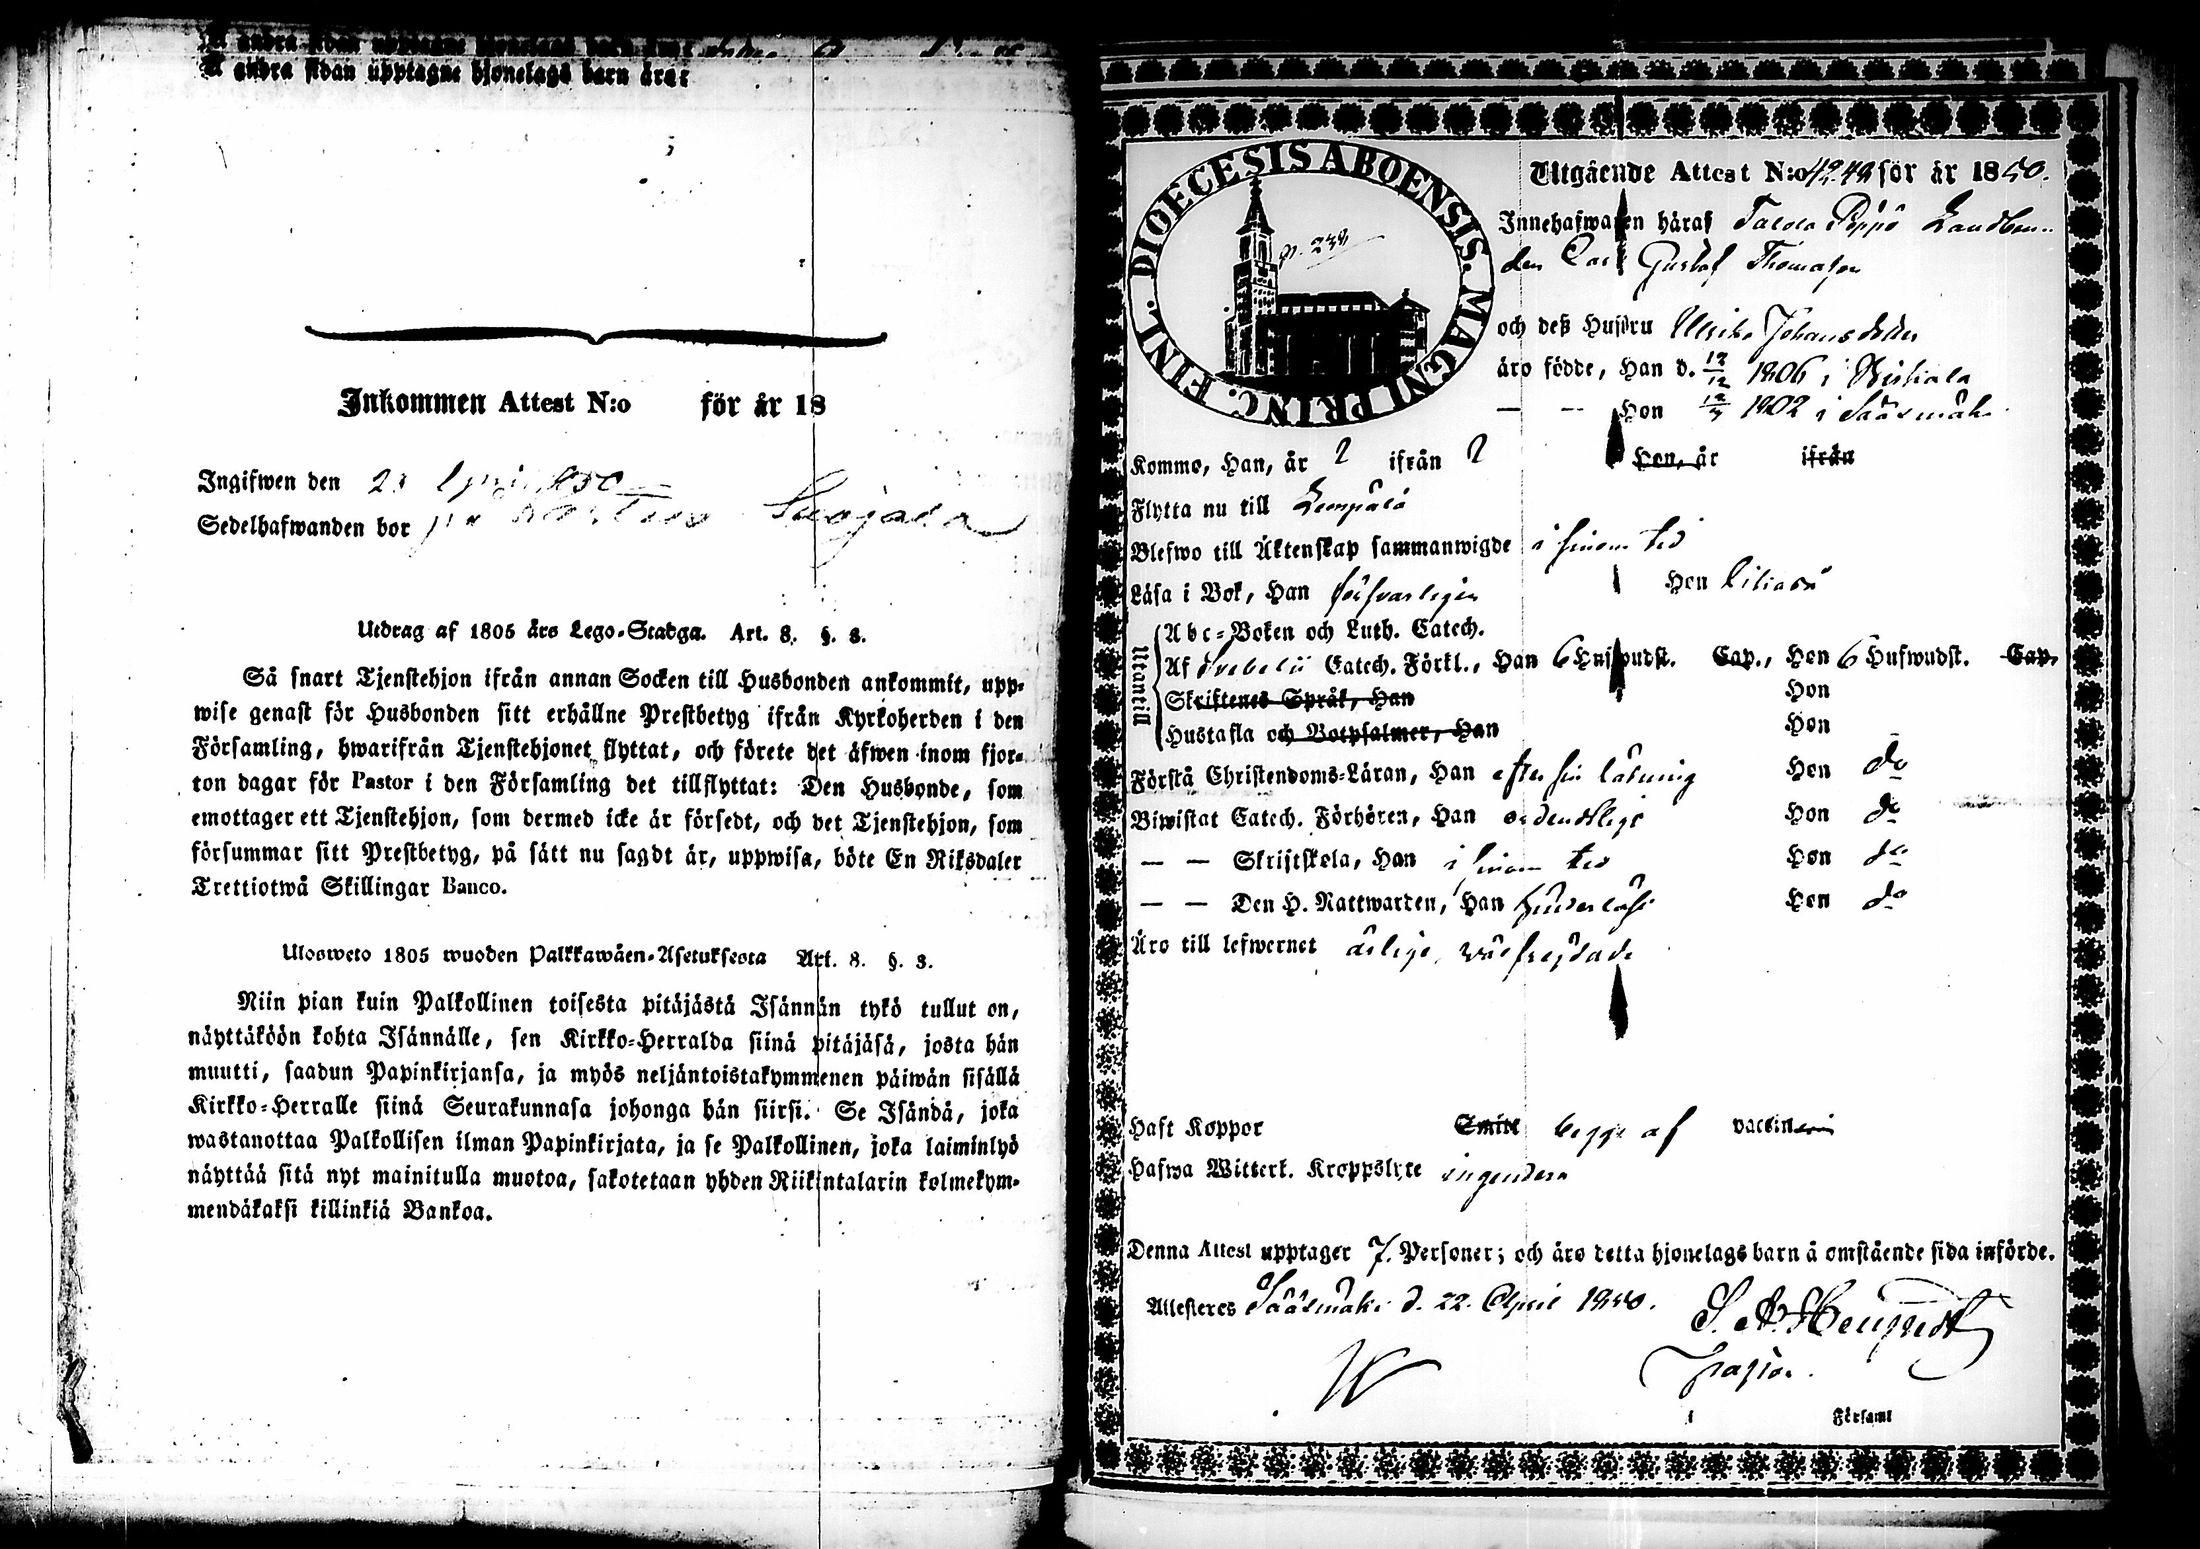 Å andra sidan upptagne hjonelags barn äro:
Inkommen Attest N:o för år 18
Ingifwen den
Sedelhafwanden bor
Utdrag af 1805 års Lego-Stadga. Art. 8. §. 3.
Så snart Tjenstehjon ifrån annan Socken till Husbonden ankommit, upp-
wise genast för Husbonden sitt erhållne Prestbetyg ifrån Kyrkoherden i den
Församling, hwarifrån Tjenstehjonet flyttat, och förete det äfwen inom fjor-
ton dagar för Pastor i den Församling det tillflyttat: Den Husbonde, som
emottager ett Tjenstehjon, som dermed icke är försedt, och det Tjenstehjon, som
försummar sitt Prestbetyg, på sätt nu sagdt är, uppwisa, böte En Riksdaler
Trettiotwå Skillingar Banco.
Ulosweto 1805 wuoden Palkkawäen-Asetuksesta Art. 8. §. 3.
Niin pian kuin Palkollinen toisesta pitäjästä Isännän tykö tullut on,
näyttäköön kohta Isännälle, sen Kirkko-Herralda siinä pitäjäsä, josta hän
muutti, saadun Papinkirjansa, ja myös neljäntoistakymmenen päiwän sisällä
Kirkko-Herralle siinä Seurakunnasa johonga hän siirsi. Se Isändä, joka
wastanottaa Palkollisen ilman Papinkirjata, ja se Palkollinen, joka laiminlyö
näyttää sitä nyt mainitulla muotoa, sakotetaan yhden Riikintalarin kolmekym-
mendäkaksi killinkiä Bankoa.
FINL. DIOECESIS ABOENSIS. MAGNI PRINC.
Utgående Attest N:o för år 1850.
Innehafwaren häraf Landbon
den Carl Gustaf Thomasson
och deß Hustru Ulrika Johansdotter
äro födde, Han d. 12/12 1806 i
— — Hon 1802 i Sääsmäki
Komme, Han, år ? ifrån ? Hon, år ifrån
Flytta nu till Lempälä
Blefwo till Äktenskap sammanwigde i sinom tid
Läsa i Bok, Han försvarligen Hon
Utantill
Abc-Boken och Luth. Catech.
Af Svebelii Catech. Förkl., Han 6 Hufwudst. Cap., Hon 6 Hufwudst. Cap.
Skriftenes Språk, Han Hon
Hustafla och Botpsalmer, Han Hon
Förstå Christendoms-Läran, Han efter sin läsning Hon do
Biwistat Catech. Förhören, Han ordentlige Hon do
— — Skriftskola, Han i sinom tid Hon do
— — Den H. Nattwarden, Han hinderlöse Hon do
Äro till lefwernet ärlige, välfrejdade
Haft Koppor Smitt begge af vaccinen
Hafwa Witterl. Kroppslyte ingendera
Denna Attest upptager 7. Personer; och äro detta hjonelags barn å omstående sida införde.
Attesteres Sääsmäki d. 22. April 1850.
Pastor.
i Församl